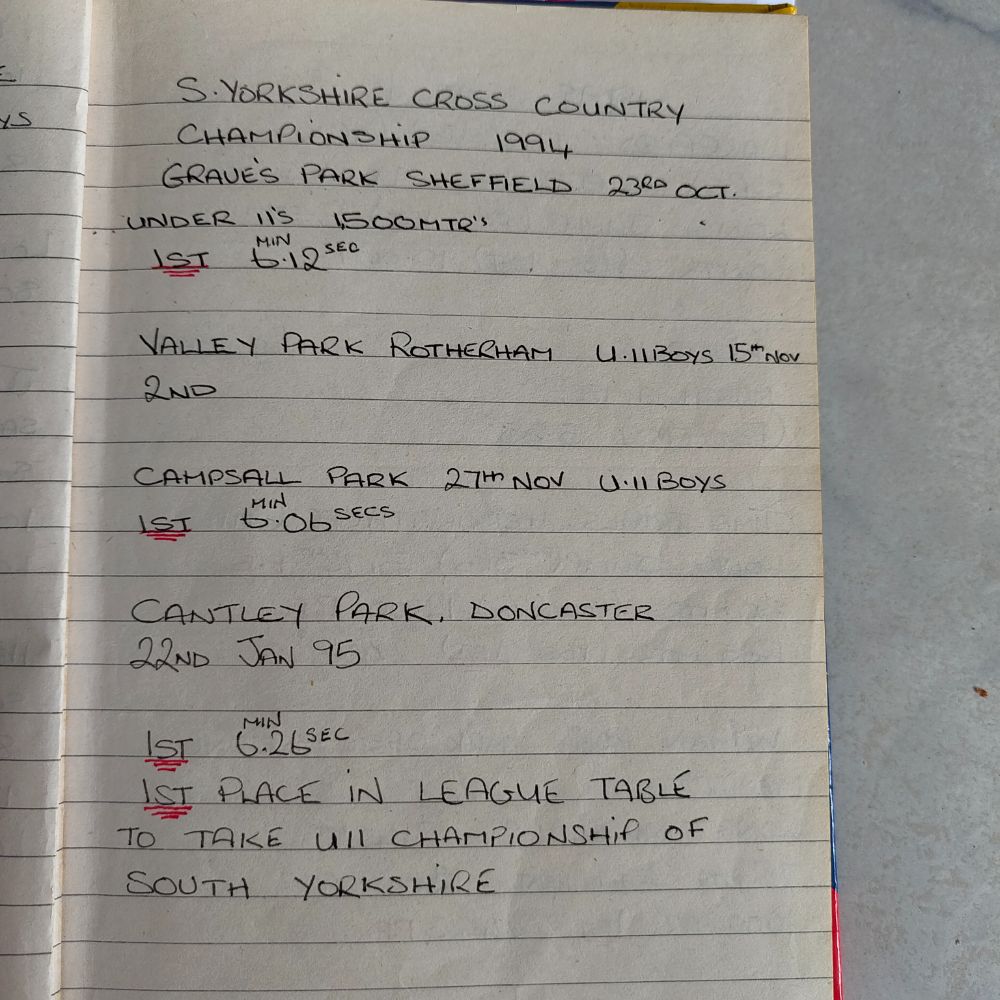 S. YORKSHIRE CROSS COUNTRY
CHAMPIONSHIP 1994
GRAVE'S PARK SHEFFIELD 23RD OCT.
UNDER 11'S 1500MTR'S
1ST 6.12 MIN SEC
VALLEY PARK ROTHERHAM U.11 BOYS 15th NOV
2ND
CAMPSALL PARK 27th NOV U.11 BOYS
1ST 6.06 MIN SECS
CANTLEY PARK, DONCASTER
22ND JAN 95
1ST 6.26 MIN SEC
1ST PLACE IN LEAGUE TABLE
TO TAKE U11 CHAMPIONSHIP OF
SOUTH YORKSHIRE